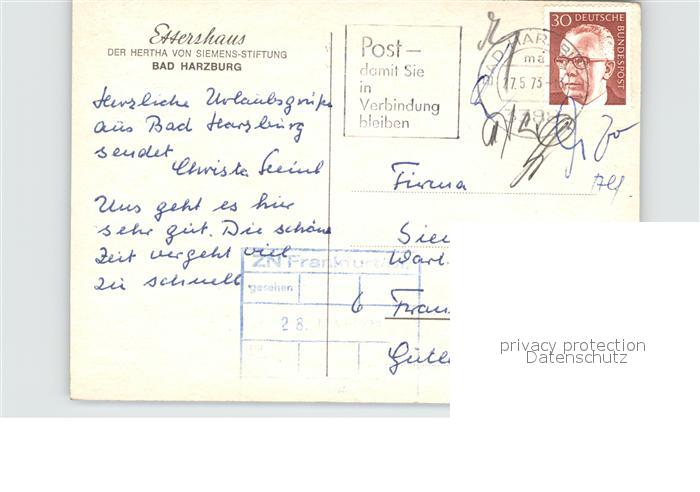 Ettershaus
DER HERTHA VON SIEMENS-STIFTUNG
BAD HARZBURG
Post —
damit Sie
in
Verbindung
bleiben
BAD HARZBURG
27.5.73
30 DEUTSCHE
BUNDESPOST
Herzliche Urlaubsgrüße
aus Bad Harzburg
sendet
Christa
Uns geht es hier
sehr gut. Die schöne
Zeit vergeht viel
zu schnell
Firma
Sie
6 Fran
Gutle
ZN Frankfurt
gesehen
28.
privacy protection
Datenschutz